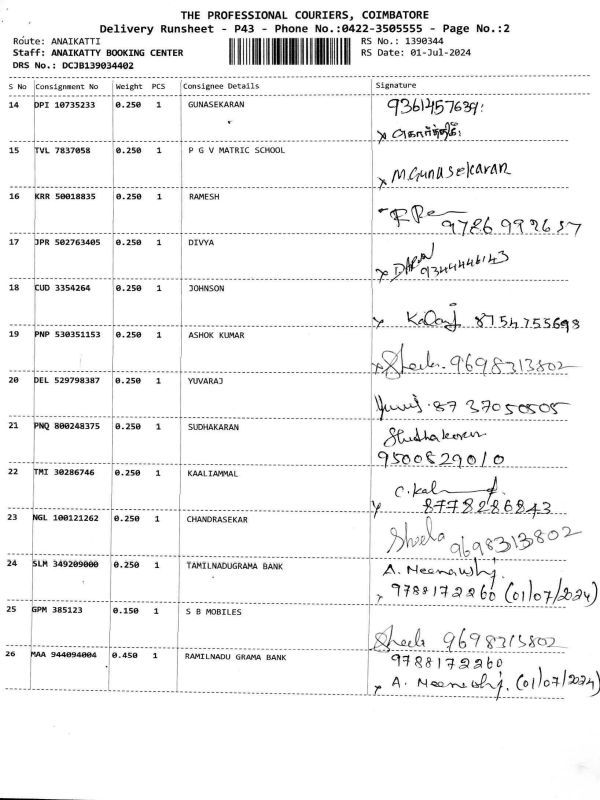 THE PROFESSIONAL COURIERS, COIMBATORE
Delivery Runsheet - P43 - Phone No.:0422-3505555 - Page No.:2
Route: ANAIKATTI
RS No.: 1390344
Staff: ANAIKATTY BOOKING CENTER
RS Date: 01-Jul-2024
DRS No.: DCJB139034402
S No Consignment No Weight PCS Consignee Details Signature
14 DPI 10735233 0.250 1 GUNASEKARAN 9361457639
x கார்த்தி
15 TVL 7837058 0.250 1 P G V MATRIC SCHOOL
x M.Gunasekaran
16 KRR 50018835 0.250 1 RAMESH
9786992637
17 JPR 502763405 0.250 1 DIVYA
x 9344446143
18 CUD 3354264 0.250 1 JOHNSON
x 8754755698
19 PNP 530351153 0.250 1 ASHOK KUMAR
x Sheela 9698313802
20 DEL 529798387 0.250 1 YUVARAJ
8737050505
21 PNQ 800248375 0.250 1 SUDHAKARAN Sudhakaran
9500829010
22 TMI 30286746 0.250 1 KAALIAMMAL
x 8778286843
23 NGL 100121262 0.250 1 CHANDRASEKAR
Sheela 9698313802
24 SLM 349209000 0.250 1 TAMILNADUGRAMA BANK A. Meenakshi.
x 9788172260 (01/07/2024)
25 GPM 385123 0.150 1 S B MOBILES
Sheela 9698313802
26 MAA 944094004 0.450 1 RAMILNADU GRAMA BANK 9788172260
x A. Meenakshi. (01/07/2024)